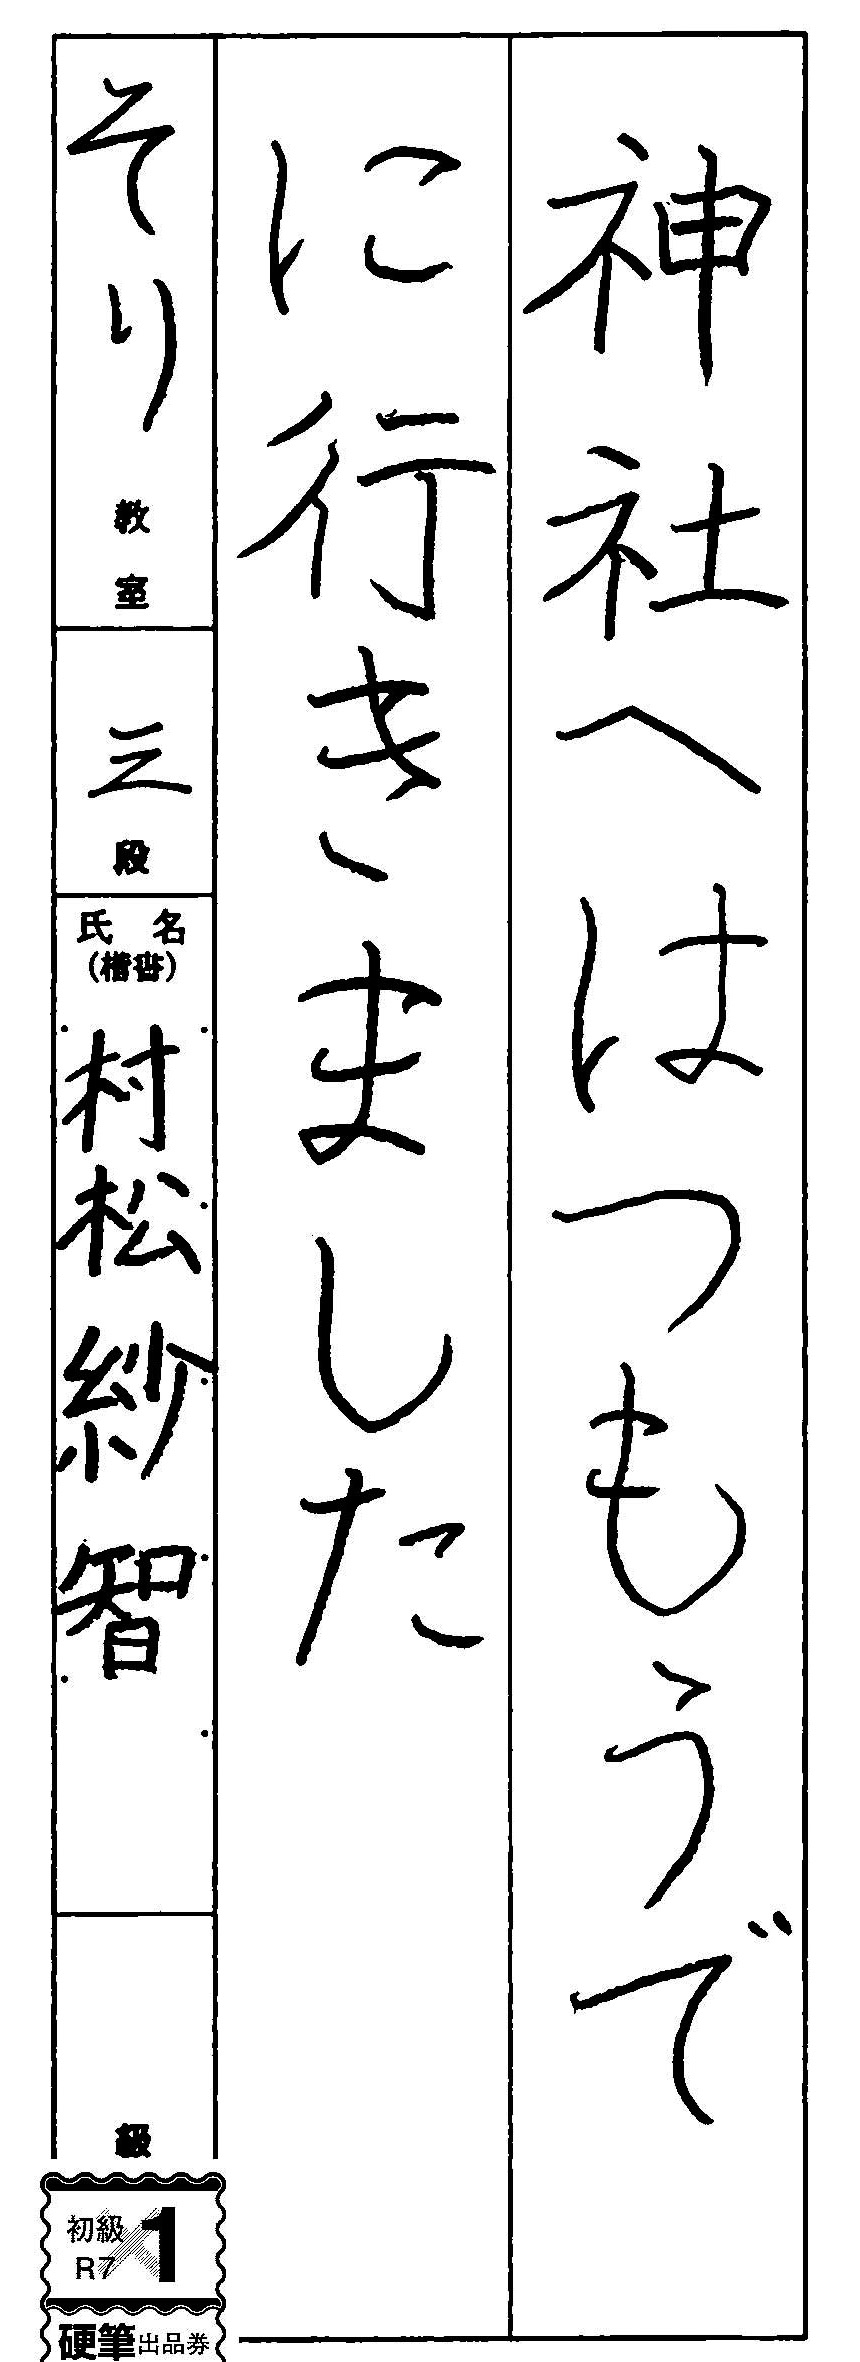 神社へはつもうで
に行きました
そり教室
三段
氏名
（楷書）
村松紗智
級
初級
R7
1
硬筆出品券